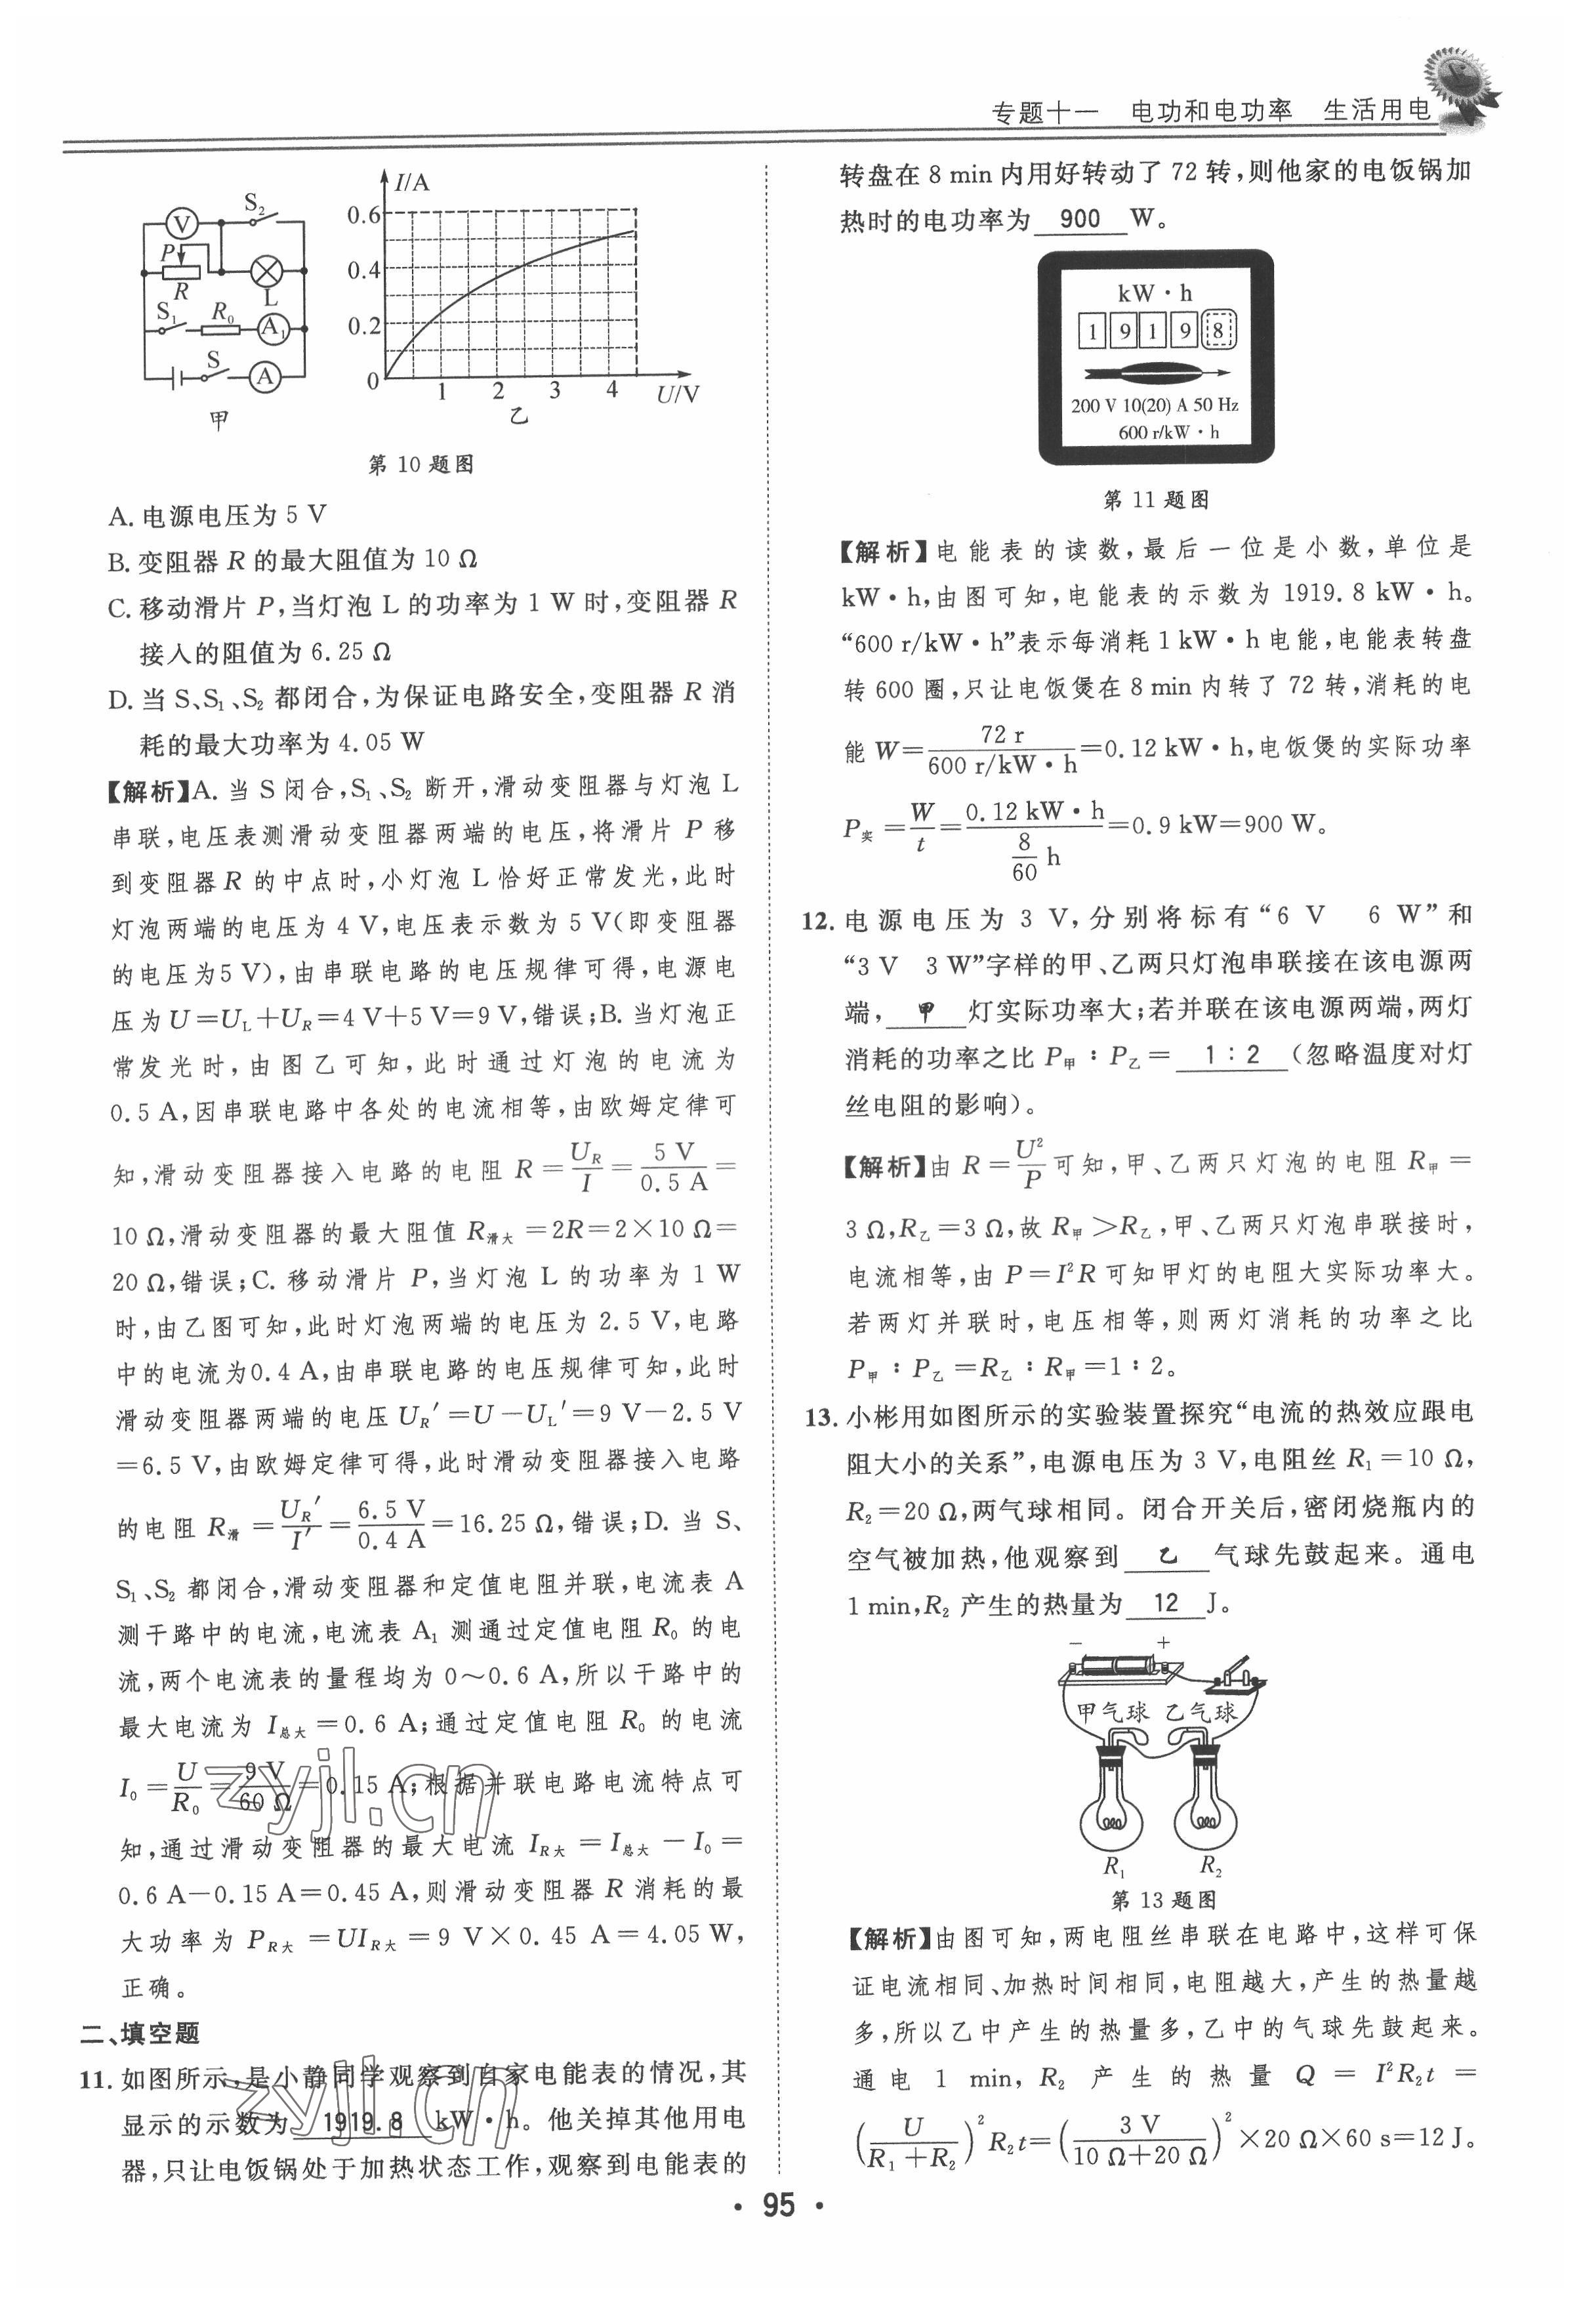 专题十一　电功和电功率　生活用电
V S₂ I/A
0.6
P
0.4
R L
S₁ R₀ A₁ 0.2
S A 0 1 2 3 4 U/V
甲 乙
第 10 题图
A. 电源电压为 5 V
B. 变阻器 R 的最大阻值为 10 Ω
C. 移动滑片 P,当灯泡 L 的功率为 1 W 时,变阻器 R
接入的阻值为 6.25 Ω
D. 当 S、S₁、S₂ 都闭合,为保证电路安全,变阻器 R 消
耗的最大功率为 4.05 W
【解析】A. 当 S 闭合,S₁、S₂ 断开,滑动变阻器与灯泡 L
串联,电压表测滑动变阻器两端的电压,将滑片 P 移
到变阻器 R 的中点时,小灯泡 L 恰好正常发光,此时
灯泡两端的电压为 4 V,电压表示数为 5 V(即变阻器
的电压为5 V),由串联电路的电压规律可得,电源电
压为 U=U_L+U_R=4 V+5 V=9 V,错误;B. 当灯泡正
常发光时,由图乙可知,此时通过灯泡的电流为
0.5 A,因串联电路中各处的电流相等,由欧姆定律可
知,滑动变阻器接入电路的电阻 R=U_R/I=5 V/0.5 A=
10 Ω,滑动变阻器的最大阻值 R滑大=2R=2×10 Ω=
20 Ω,错误;C. 移动滑片 P,当灯泡 L 的功率为 1 W
时,由乙图可知,此时灯泡两端的电压为 2.5 V,电路
中的电流为0.4 A,由串联电路的电压规律可知,此时
滑动变阻器两端的电压 U_R′=U-U_L′=9 V-2.5 V
=6.5 V,由欧姆定律可得,此时滑动变阻器接入电路
的电阻 R滑=U_R′/I′=6.5 V/0.4 A=16.25 Ω,错误;D. 当 S、
S₁、S₂ 都闭合,滑动变阻器和定值电阻并联,电流表 A
测干路中的电流,电流表 A₁ 测通过定值电阻 R₀ 的电
流,两个电流表的量程均为 0~0.6 A,所以干路中的
最大电流为 I总大=0.6 A;通过定值电阻 R₀ 的电流
I₀=U/R₀=9 V/60 Ω=0.15 A;根据并联电路电流特点可
知,通过滑动变阻器的最大电流 I_R大=I总大-I₀=
0.6 A-0.15 A=0.45 A,则滑动变阻器 R 消耗的最
大功率为 P_R大=UI_R大=9 V×0.45 A=4.05 W,
正确。
二、填空题
11. 如图所示,是小静同学观察到自家电能表的情况,其
显示的示数为 1919.8 kW·h。他关掉其他用电
器,只让电饭锅处于加热状态工作,观察到电能表的
zyjl.cn
zyjl.cn
转盘在 8 min 内用好转动了 72 转,则他家的电饭锅加
热时的电功率为 900 W。
kW·h
1 9 1 9 8
200 V 10(20) A 50 Hz
600 r/kW·h
第 11 题图
【解析】电能表的读数,最后一位是小数,单位是
kW·h,由图可知,电能表的示数为 1919.8 kW·h。
“600 r/kW·h”表示每消耗 1 kW·h 电能,电能表转盘
转 600 圈,只让电饭煲在 8 min 内转了 72 转,消耗的电
能 W=72 r/600 r/kW·h=0.12 kW·h,电饭煲的实际功率
P实=W/t=0.12 kW·h/(8/60 h)=0.9 kW=900 W。
12. 电源电压为 3 V,分别将标有“6 V　6 W”和
“3 V　3 W”字样的甲、乙两只灯泡串联接在该电源两
端, 甲 灯实际功率大;若并联在该电源两端,两灯
消耗的功率之比 P甲∶P乙= 1∶2 (忽略温度对灯
丝电阻的影响)。
【解析】由 R=U²/P可知,甲、乙两只灯泡的电阻 R甲=
3 Ω,R乙=3 Ω,故 R甲>R乙,甲、乙两只灯泡串联接时,
电流相等,由 P=I²R 可知甲灯的电阻大实际功率大。
若两灯并联时,电压相等,则两灯消耗的功率之比
P甲∶P乙=R乙∶R甲=1∶2。
13. 小彬用如图所示的实验装置探究“电流的热效应跟电
阻大小的关系”,电源电压为 3 V,电阻丝 R₁=10 Ω,
R₂=20 Ω,两气球相同。闭合开关后,密闭烧瓶内的
空气被加热,他观察到 乙 气球先鼓起来。通电
1 min,R₂ 产生的热量为 12 J。
- +
甲气球 乙气球
R₁ R₂
第 13 题图
【解析】由图可知,两电阻丝串联在电路中,这样可保
证电流相同、加热时间相同,电阻越大,产生的热量越
多,所以乙中产生的热量多,乙中的气球先鼓起来。
通电 1 min, R₂ 产生的热量 Q=I²R₂t=
(U/(R₁+R₂))²R₂t=(3 V/(10 Ω+20 Ω))²×20 Ω×60 s=12 J。
· 95 ·